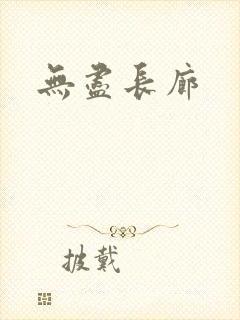 無盡長廊
披戴